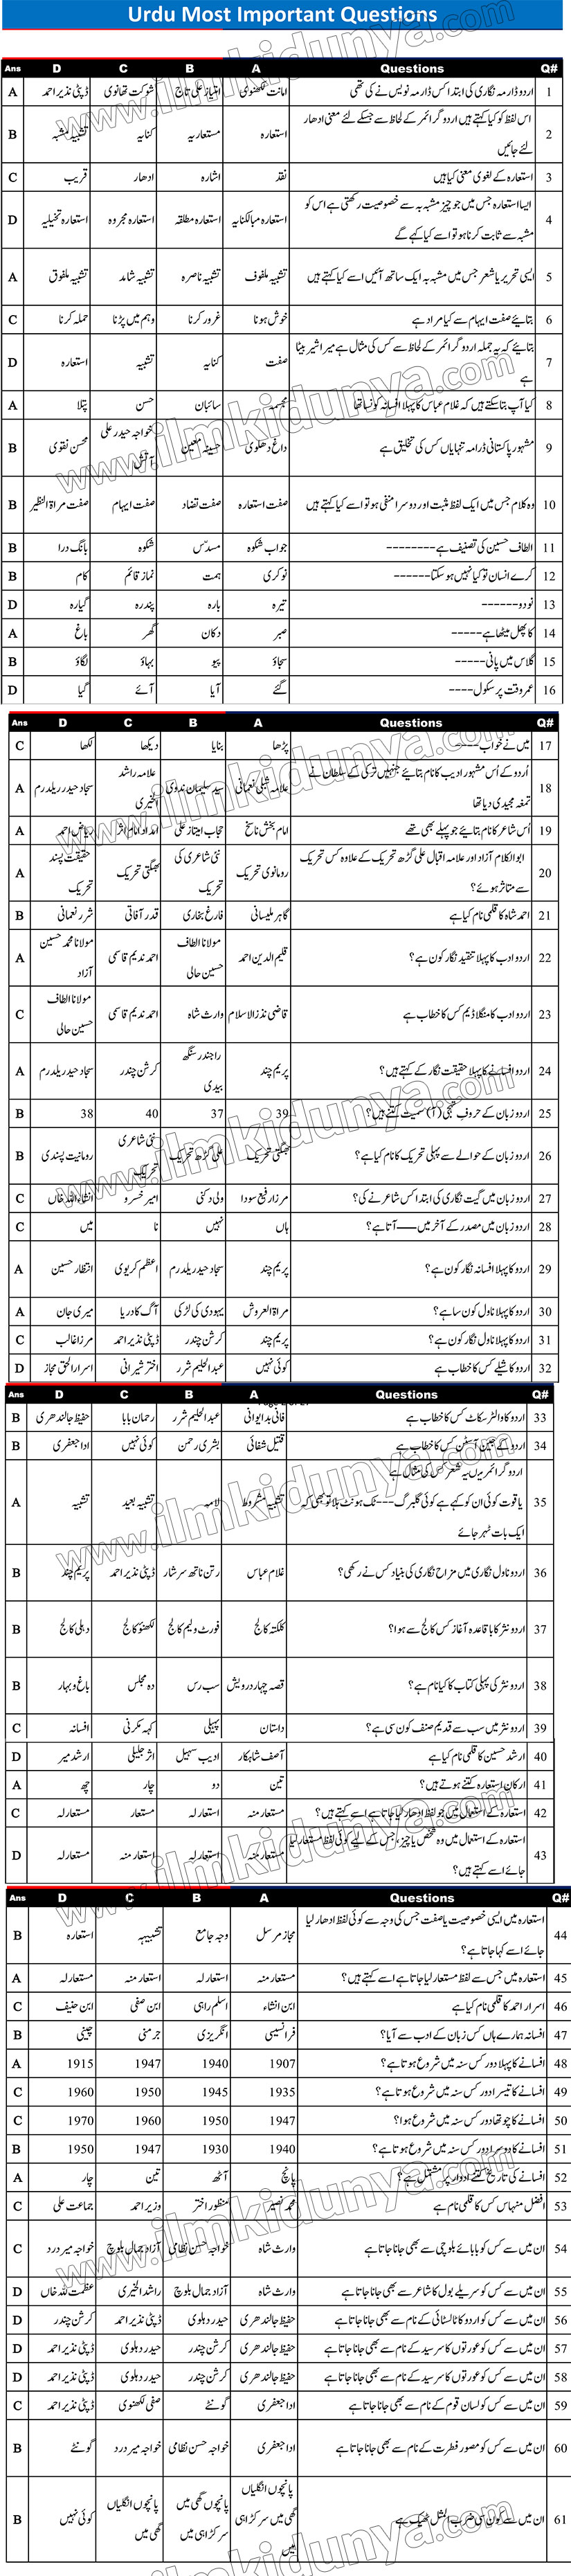 Urdu Most Important Questions
Ans D C B A Questions Q#
1 اردو ڈارمہ نگاری کی ابتدا کس ڈارمہ نویس نے کی تھی امانت لکھنوی امتیاز علی تاج شوکت تھانوی ڈپٹی نذیر احمد A
2 اس لفظ کو کیا کہتے ہیں اردو گرائمر کے لحاظ سے جسکے لئے معنی ادھار
لئے جائیں استعارہ مستعاریہ کنایہ تشبیہ مشبہ B
3 استعارہ کے لغوی معنی کیا ہیں نقد اشارہ ادھار قریب C
4 ایسا استعارہ جس میں جو چیز مشبہ بہ سے خصوصیت رکھتی ہے اس کو
مشبہ سے ثابت کرنا ہو تو اسے کیا کہے گے استعارہ مبالکنایہ استعارہ مطلقہ استعارہ مجروہ استعارہ تخیلیہ D
5 ایسی تحریر یا شعر جس میں مشبہ بہ ایک ساتھ آئیں اسے کیا کہتے ہیں تشبیہ ملفوف تشبیہ ناصرہ تشبیہ شاہد تشبیہ ملفوق A
6 بتایئے صفت ایہام سے کیا مراد ہے خوش ہونا غرور کرنا وہم میں پڑنا حملہ کرنا C
7 بتایئے کہ یہ جملہ اردو گرائمر کے لحاظ سے کس کی مثال ہے میرا شیر بیٹا
ہے صفت کنایہ تشبیہ استعارہ D
8 کیا آپ بتاسکتے ہیں کہ غلام عباس کا پہلا افسانہ کونسا تھا مجسمہ سائبان حسن پتلا A
9 مشہور پاکستانی ڈرامہ تنہایاں کس کی تخلیق ہے داغ دھلوی حسینہ معین خواجہ حیدر علی
آتش محسن نقوی B
10 وہ کلام جس میں ایک لفظ مثبت اور دوسرا منفی ہو تو اسے کیا کہتے ہیں صفت استعارہ صفت تضاد صفت ایہام صفت مراۃ النظیر B
11 الطاف حسین کی تصنیف ہے -------- جواب شکوہ مسدّس شکوہ بانگ درا B
12 کرے انسان تو کیا نہیں ہو سکتا------ نوکری ہمت نماز قائم کام B
13 نو دو------ تیرہ بارہ پندرہ گیارہ D
14 کا پھل میٹھا ہے----- صبر دکان گھر باغ A
15 گلاس میں پانی----- سجاؤ پیو بہاؤ لگاؤ B
16 عمر وقت پر سکول---- گئے آیا آئے گیا D
Ans D C B A Questions Q#
17 میں نے خواب---- پڑھا بنایا دیکھا لکھا C
18 اُردو کے اُس مشہور ادیب کا نام بتایئے جنہیں ترکی کے سلطان نے
تمغہ مجیدی دیا تھا علامہ شبلی نعمانی سید سلیمان ندوی علامہ راشد
الخیری سجاد حیدر یلدرم A
19 اُس شاعر کا نام بتایئے جو پہلے بھی تھے امام بخش ناسخ حجاب امتیاز علی امداد امام اثر ریاض احمد A
20 ابوالکلام آزاد اور علامہ اقبال علی گڑھ تحریک کے علاوہ کس تحریک
سے متاثر ہوئے؟ رومانوی تحریک نئی شاعری کی
تحریک بھگتی تحریک حقیقت پسند
تحریک A
21 احمد شاہ کا قلمی نام کیا ہے گاہر ملیسانی فارغ بخاری قدر آفاقی شرر نعمانی B
22 اردو ادب کا پہلا تنقید نگار کون ہے؟ قلیم الدین احمد مولانا الطاف
حسین حالی احمد ندیم قاسمی مولانا محمد حسین
آزاد A
23 اردو ادب کا منگلا ڈیم کس کا خطاب ہے قاضی نذر الاسلام وارث شاہ احمد ندیم قاسمی مولانا الطاف
حسین حالی C
24 اردو افسانے کا پہلا حقیقت نگار کے کہتے ہیں؟ پریم چند راجندر سنگھ
بیدی کرشن چندر سجاد حیدر یلدرم A
25 اردو زبان کے حروف تہجی (آ) سمیت کتنے ہیں؟ 39 37 40 38 B
26 اردو زبان کے حوالے سے پہلی تحریک کا نام کیا ہے؟ بھگتی تحریک علی گڑھ تحریک نئی شاعری
تحریک رومانیت پسندی B
27 اردو زبان میں گیت نگاری کی ابتدا کس شاعر نے کی؟ مرزا رفیع سودا ولی دکنی امیر خسرو انشاء اللہ خاں C
28 اردو زبان میں مصدر کے آخر میں ---- آتا ہے؟ ہاں نہیں نا میں C
29 اردو کا پہلا افسانہ نگار کون ہے؟ پریم چند سجاد حیدر یلدرم اعظم کریوی انتظار حسین A
30 اردو کا پہلا ناول کون سا ہے؟ مراۃ العروش یہودی کی لڑکی آگ کا دریا میری جان A
31 اردو کا پہلا ناول نگار کون ہے؟ پریم چند کرشن چندر ڈپٹی نذیر احمد مرزا غالب C
32 اردو کا شیلے کس کا خطاب ہے کوئی نہیں عبدالحلیم شرر اختر شیرانی اسرار الحق مجاز D
Ans D C B A Questions Q#
33 اردو کا والٹر سکاٹ کس کا خطاب ہے فانی بدایوانی عبدالحلیم شرر رحمان بابا حفیظ جالندھری B
34 اردو کے جین آسٹن کس کا خطاب ہے قتیل شفائی بشری رحمن کوئی نہیں ادا جعفری B
35 اردو گرائمر میں یہ شعر کس کی مثال ہے
یاقوت کوئی ان کو کہے ہے کوئی گلبرگ---ٹک ہونٹ ہلا تو بھی کہ
ایک بات ٹھہر جائے تشبیہ مشروط لامہ تشبیہ بعید تشبیہ A
36 اردو ناول نگاری میں مزاح نگاری کی بنیاد کس نے رکھی؟ غلام عباس رتن ناتھ سرشار ڈپٹی نذیر احمد پریم چند B
37 اردو نثر کا باقاعدہ آغاز کس کالج سے ہوا؟ کلکتہ کالج فورٹ ولیم کالج لکھنو کالج دہلی کالج B
38 اردو نثر کی پہلی کتاب کا کیا نام ہے؟ قصہ چہار درویش سب رس دہ مجلس باغ و بہار B
39 اردو نثر میں سب سے قدیم صنف کون سی ہے؟ داستان پہیلی کہہ مکرنی افسانہ C
40 ارشد حسین کا قلمی نام کیا ہے آصف شاہکار ادیب سہیل اثر جلیلی ارشد میر D
41 ارکان استعارہ کتنے ہوتے ہیں؟ تین دو چار چھ A
42 استعارہ کے استعمال میں جو لفظ ادھار لیا جاتا ہے اسے کہتے ہیں؟ مستعار منہ استعار لہ مستعار مستعار لہ C
43 استعارہ کے استعمال میں وہ شخص یا چیز، جس کے لیے کوئی لفظ مستعار لیا
جائے اسے کہتے ہیں؟ مستعار منہ استعار لہ استعار منہ مستعار لہ D
Ans D C B A Questions Q#
44 استعارہ میں ایسی خصوصیت یا صفت جس کی وجہ سے کوئی لفظ ادھار لیا
جائے اسے کہا جاتا ہے؟ مجاز مرسل وجہ جامع تشبیہہ استعارہ B
45 استعارہ میں جس سے لفظ مستعار لیا جاتا ہے اسے کہتے ہیں؟ مستعار منہ استعار لہ استعار منہ مستعار لہ A
46 اسرار احمد کا قلمی نام کیا ہے ابن انشاء اسلم راہی ابن صفی ابن حنیف C
47 افسانہ ہمارے ہاں کس زبان کے ادب سے آیا؟ فرانسیسی انگریزی جرمنی چینی B
48 افسانے کا پہلا دور کس سنہ میں شروع ہوتا ہے؟ 1907 1940 1947 1915 A
49 افسانے کا تیسرا دور کس سنہ میں شروع ہوتا ہے؟ 1935 1945 1950 1960 C
50 افسانے کا چوتھا دور کس سنہ میں شروع ہوا؟ 1947 1950 1960 1970 C
51 افسانے کا دوسرا دور کس سنہ میں شروع ہوتا ہے؟ 1940 1930 1947 1950 B
52 افسانے کی تاریخ کتنے ادوار پر مشتمل ہے؟ پانچ آٹھ تین چار A
53 افضل منہاس کس کا قلمی نام ہے محمد نصیر منظور اختر وزیر احمد جماعت علی C
54 ان میں سے کس کو بابائے بلوچی سے بھی جانا جاتا ہے وارث شاہ خواجہ حسن نظامی آزاد جمال بلوچ خواجہ میر درد C
55 ان میں سے کس کو سریلے بول کا شاعر سے بھی جانا جاتا ہے وارث شاہ آزاد جمال بلوچ راشد الخیری عظمت اللہ خاں D
56 ان میں سے کس کو اردو کا ٹالسٹائی کے نام سے بھی جانا جاتا ہے حفیظ جالندھری حیدر دہلوی ڈپٹی نذیر احمد کرشن چندر D
57 ان میں سے کس کو عورتوں کا سرسید کے نام سے بھی جانا جاتا ہے حفیظ جالندھری کرشن چندر حیدر دہلوی ڈپٹی نذیر احمد D
58 ان میں سے کس کو عورتوں کا سرسید کے نام سے بھی جانا جاتا ہے حفیظ جالندھری کرشن چندر حیدر دہلوی ڈپٹی نذیر احمد D
59 ان میں سے کس کو لسان قوم کے نام سے بھی جانا جاتا ہے ادا جعفری گوئٹے صفی لکھنوی ڈپٹی نذیر احمد C
60 ان میں سے کس کو مصور فطرت کے نام سے بھی جانا جاتا ہے ادا جعفری خواجہ حسن نظامی خواجہ میر درد گوئٹے B
61 ان میں سے کون سی ضرب المثل ٹھیک ہے پانچوں انگلیاں
گھی میں سر کڑاہی
میں پانچوں گھی میں
سر کڑاہی میں پانچوں انگلیاں
گھی میں کوئی نہیں B
www.ilmkidunya.com